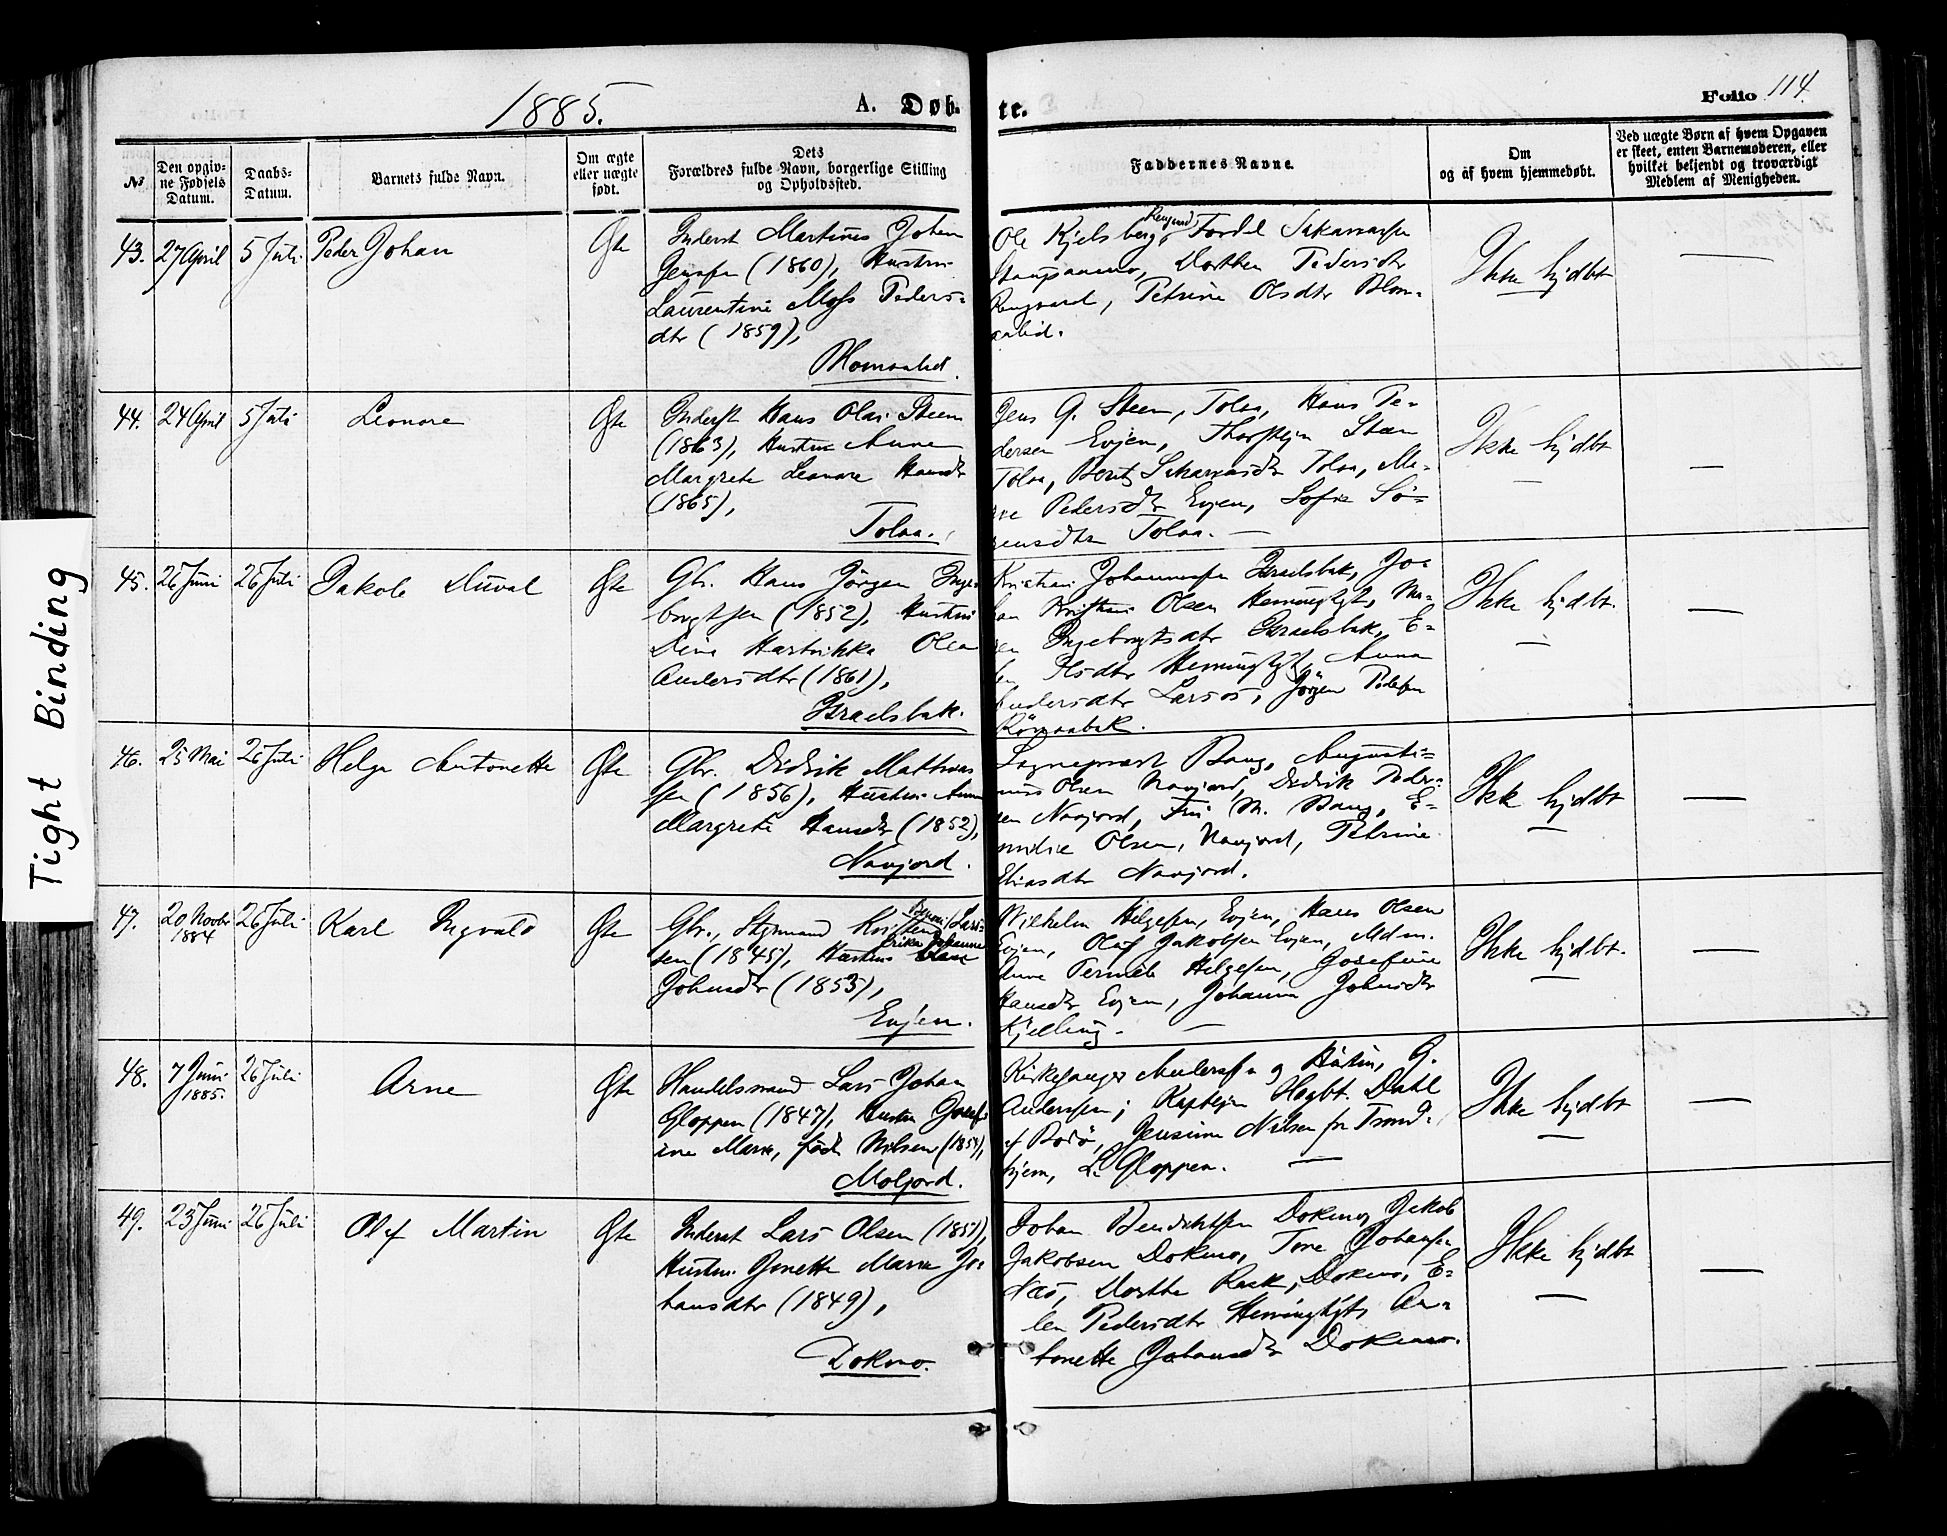 1885.
A. Døb.
te.
Folio 114.
№
Den opgiv-
ne Fødsels
Datum.
Daabs-
Datum.
Barnets fulde Navn.
Om ægte
eller uægte
født.
Dets
Forældres fulde Navn, borgerlige Stilling
og Opholdssted.
Faddernes Navne.
Om
og af hvem hjemmedøbt.
Ved uægte Børn af hvem Opgaven
er skeet, enten Barnemoderen, eller
hvilket bekjendt og troværdigt
Medlem af Menigheden.
43.
27 April
5 Juli
Peder Johan
Ægte
Inderst Martinus Johan
Jensen (1860), Hustru
Laurentine Moss Peders-
dtr (1859),
Ole Kjelsberg,
Dorthea Pedersdtr
Petrine Olsdtr
Ikke hjdbt
—
44.
24 April
5 Juli
Leonore
Ægte
Inderst Hans Olai Steen
(1863), Hustru Anne
Margrete Leonore Hansdtr
(1865),
Tolaa.
Jens G. Steen, Tolaa, Hans Pe-
dersen Evjen, Thorstejn Steen
Tolaa, Berit Tolaa, Ma-
Pedersdtr Evjen, Sofie Sö-
rensdtr Tolaa. —
Ikke hjdbt
—
—
45.
26 Juni
26 Juli
Jakob Duval
Ægte
Gbr. Hans Jörgen Inge-
brigtsen (1852), Hustru
Dina Hartvikka Olea
Andersdtr (1861),
Israelsbak.
Kristian Johannesen Israelsbak, Jo-
han Kristian Olsen
Ingebrigtsdtr Israelsbak, E-
len Olsdtr Anna
Andersdtr Larsos, Jörgen Pedersen
Ikke hjdbt.
—
—
46.
25 Mai
26 Juli
Helga Antonette
Ægte
Gbr. Didrik Mathias
sen (1856), Hustru Anna
Margrete Hansdtr (1852),
Navjord.
Sogneprest Bang, Augusti-
nus Olsen Navjord, Didrik Peder-
sen Navjord, Fru M. Bang, E-
milie Olsen, Navjord, Petrine
Eliasdtr Navjord.
Ikke hjdbt
—
—
47.
20 Novbr
1884
26 Juli
Karl Ingvald
Ægte
Gbr., Styrmand Kristen Lars-
sen (1845), Hustru
Johnsdtr (1853),
Evjen.
Wilhelm Helgesen, Evjen, Hans Olsen
Evjen, Olaf Jakobsen Evjen, Mdm.
Anne Helgesen, Josefine
Hansdtr Evjen, Johanna Johnsdtr
Kjelling. —
Ikke hjdbt.
—
—
48.
7 Juni
1885.
26 Juli
Arne
Ægte
Handelsmand Lars Johan
Gloppen (1847), Hustru Josef-
ine Marie, född Nilsen (1854),
Moljord.
Kirkesanger Andersen og Hustru, G.
Andersen; Kaptejn Hagbt. Dahl
af Bodö, Jensine Nilsen fra Trond-
hjem, L. Gloppen. —
Ikke hjdbt
—
—
49.
23 Juni
26 Juli
Olef Martin
Ægte
Inderst Lars Olsen (1851),
Hustru Jonette Marie Jo-
hansdtr (1849),
Dokmo.
Johan Bendiktsen Dokmo, Jakob
Jakobsen Dokmo, Tore Johansen
Næs, Dorthe Rask, Dokmo, E-
len Pedersdtr An-
tonette Johansdtr Dokmo.
Ikke hjdbt
—
—
Tight Binding